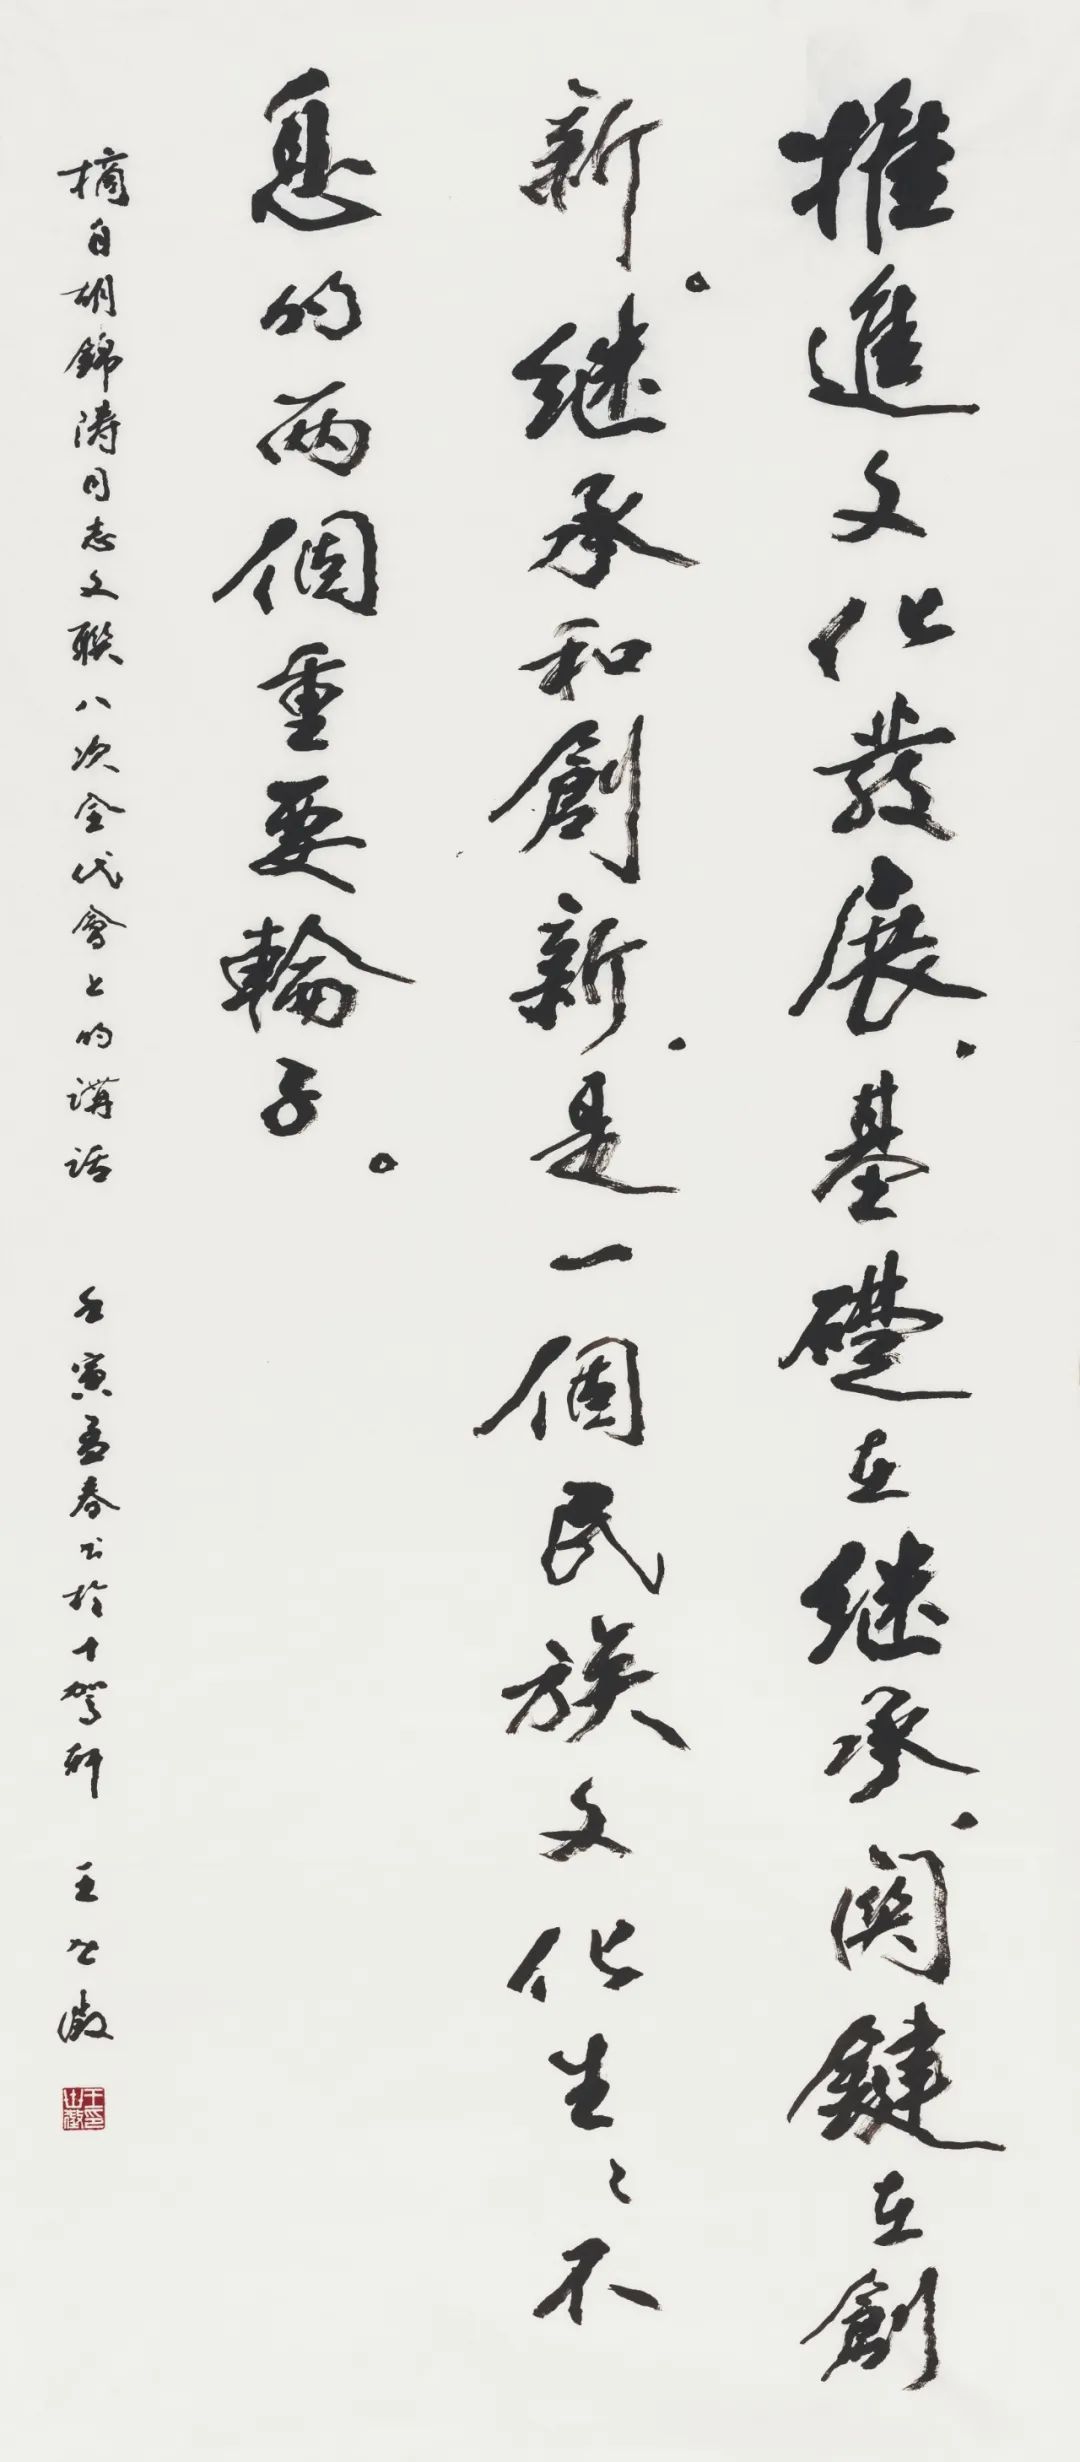 推進文化發展，基礎在继承，関鍵在創
新。继承和創新，是一個民族文化生々不
息的兩個重要輪子。
摘自胡錦涛同志文聯八次全代會上的講話 壬寅孟春书於十驾軒 王世澂